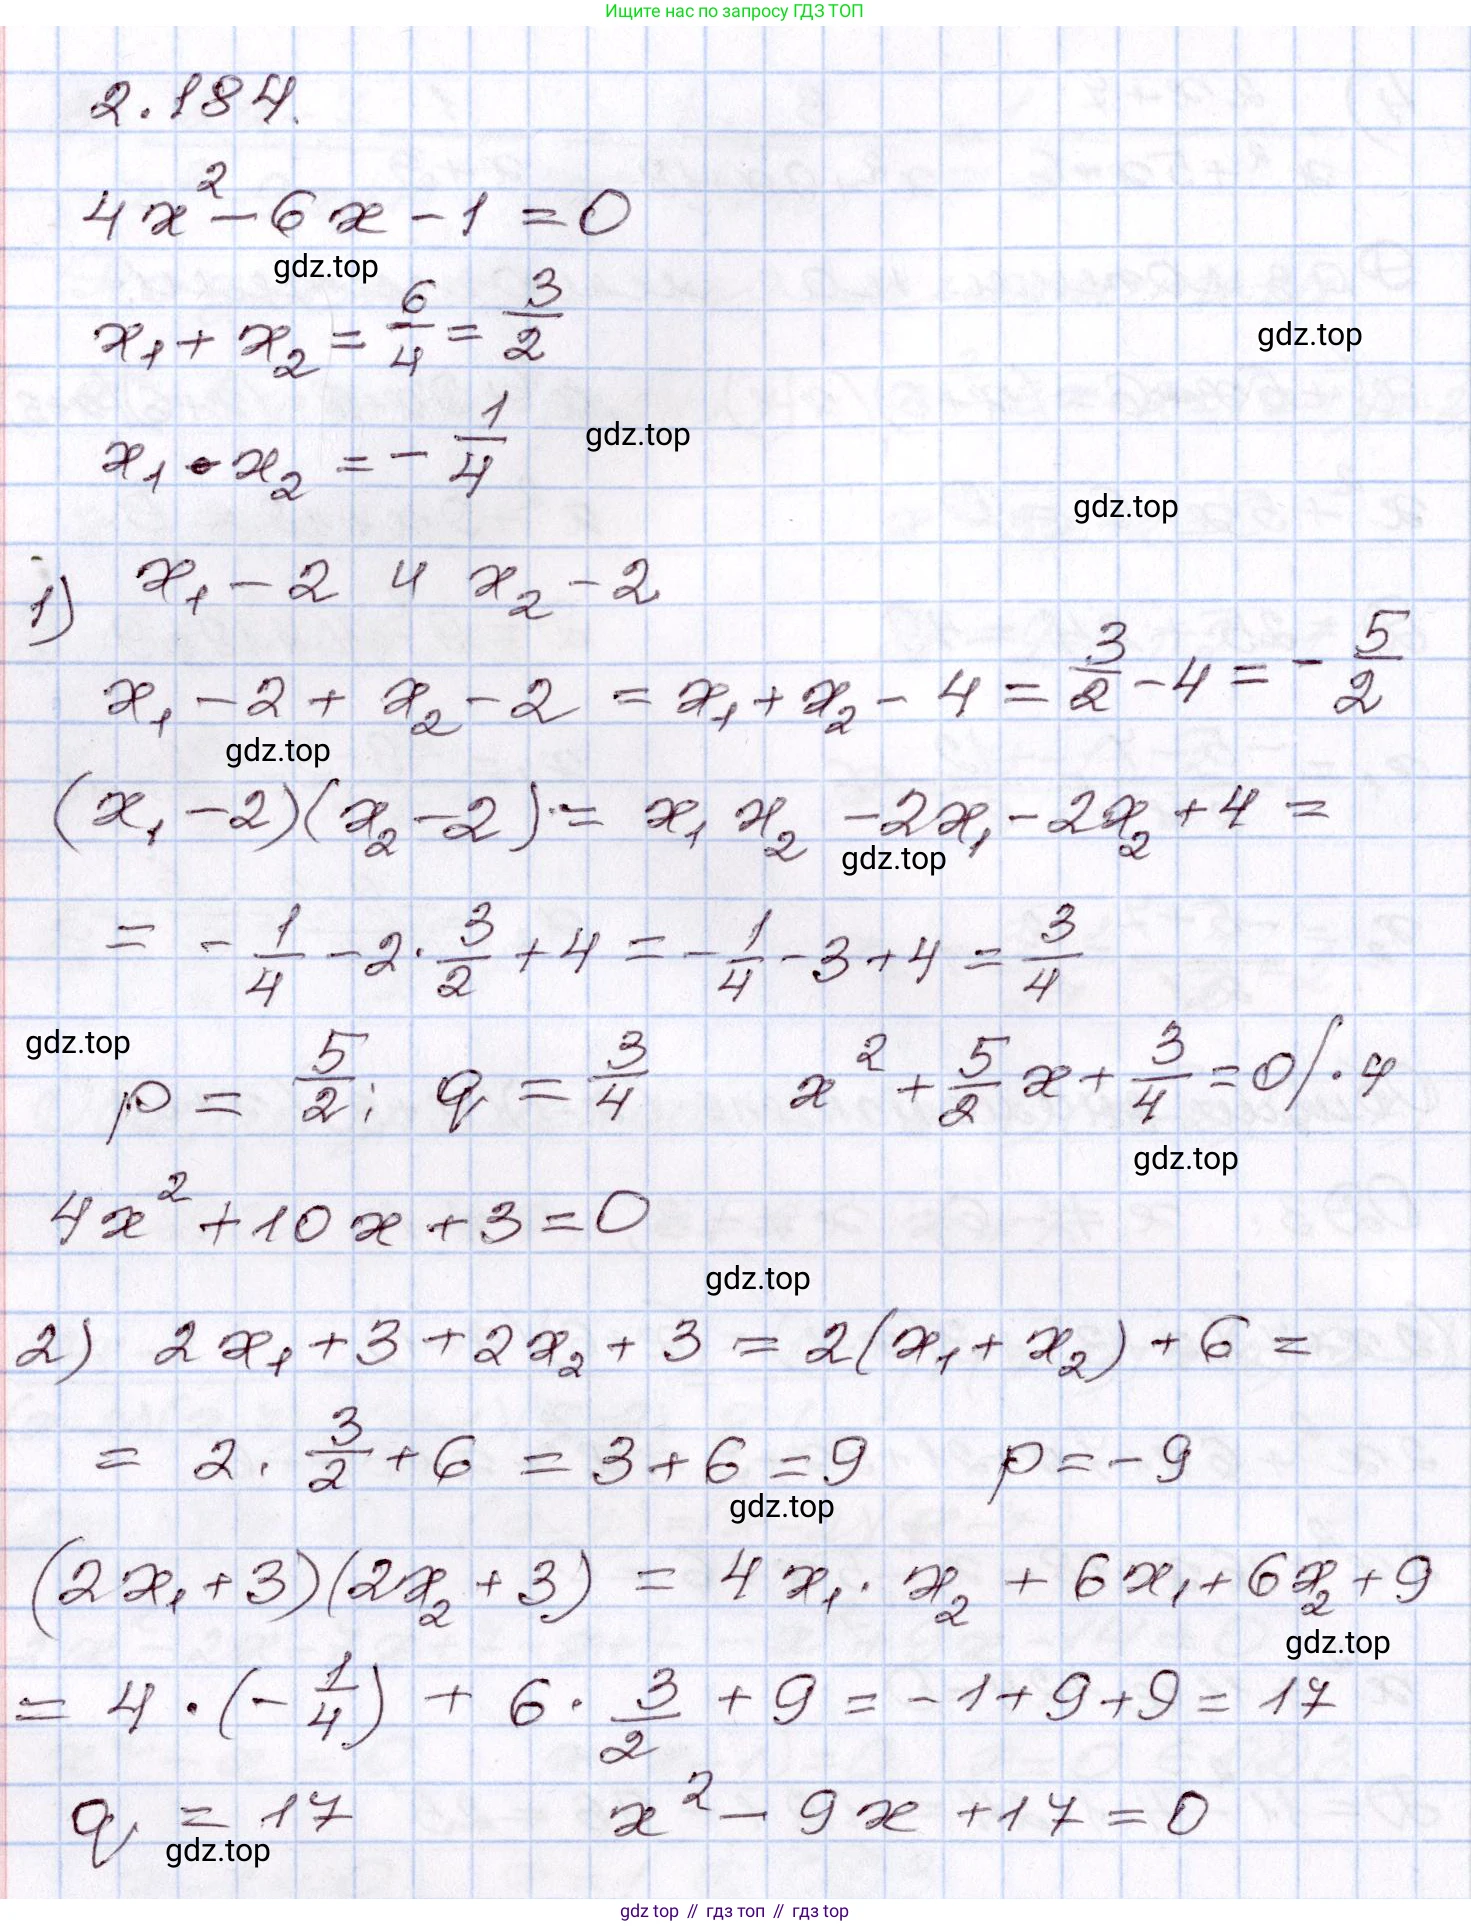 Ищите нас по запросу ГДЗ ТОП
2.184.
4x² - 6x - 1 = 0
gdz.top
x₁ + x₂ = 6/4 = 3/2
gdz.top
x₁ • x₂ = - 1/4
gdz.top
gdz.top
1) x₁ - 2 и x₂ - 2
x₁ - 2 + x₂ - 2 = x₁ + x₂ - 4 = 3/2 - 4 = - 5/2
gdz.top
(x₁ - 2)(x₂ - 2) = x₁ x₂ - 2x₁ - 2x₂ + 4 =
gdz.top
= - 1/4 - 2 · 3/2 + 4 = - 1/4 - 3 + 4 = 3/4
gdz.top
p = 5/2; q = 3/4 x² + 5/2 x + 3/4 = 0 | · 4
gdz.top
4x² + 10x + 3 = 0
gdz.top
2) 2x₁ + 3 + 2x₂ + 3 = 2(x₁ + x₂) + 6 =
= 2 · 3/2 + 6 = 3 + 6 = 9 p = - 9
gdz.top
(2x₁ + 3)(2x₂ + 3) = 4x₁ · x₂ + 6x₁ + 6x₂ + 9
gdz.top
= 4 · (- 1/4) + 6 · 3/2 + 9 = - 1 + 9 + 9 = 17
q = 17 x² - 9x + 17 = 0
gdz.top
gdz top // гдз топ // gdz top